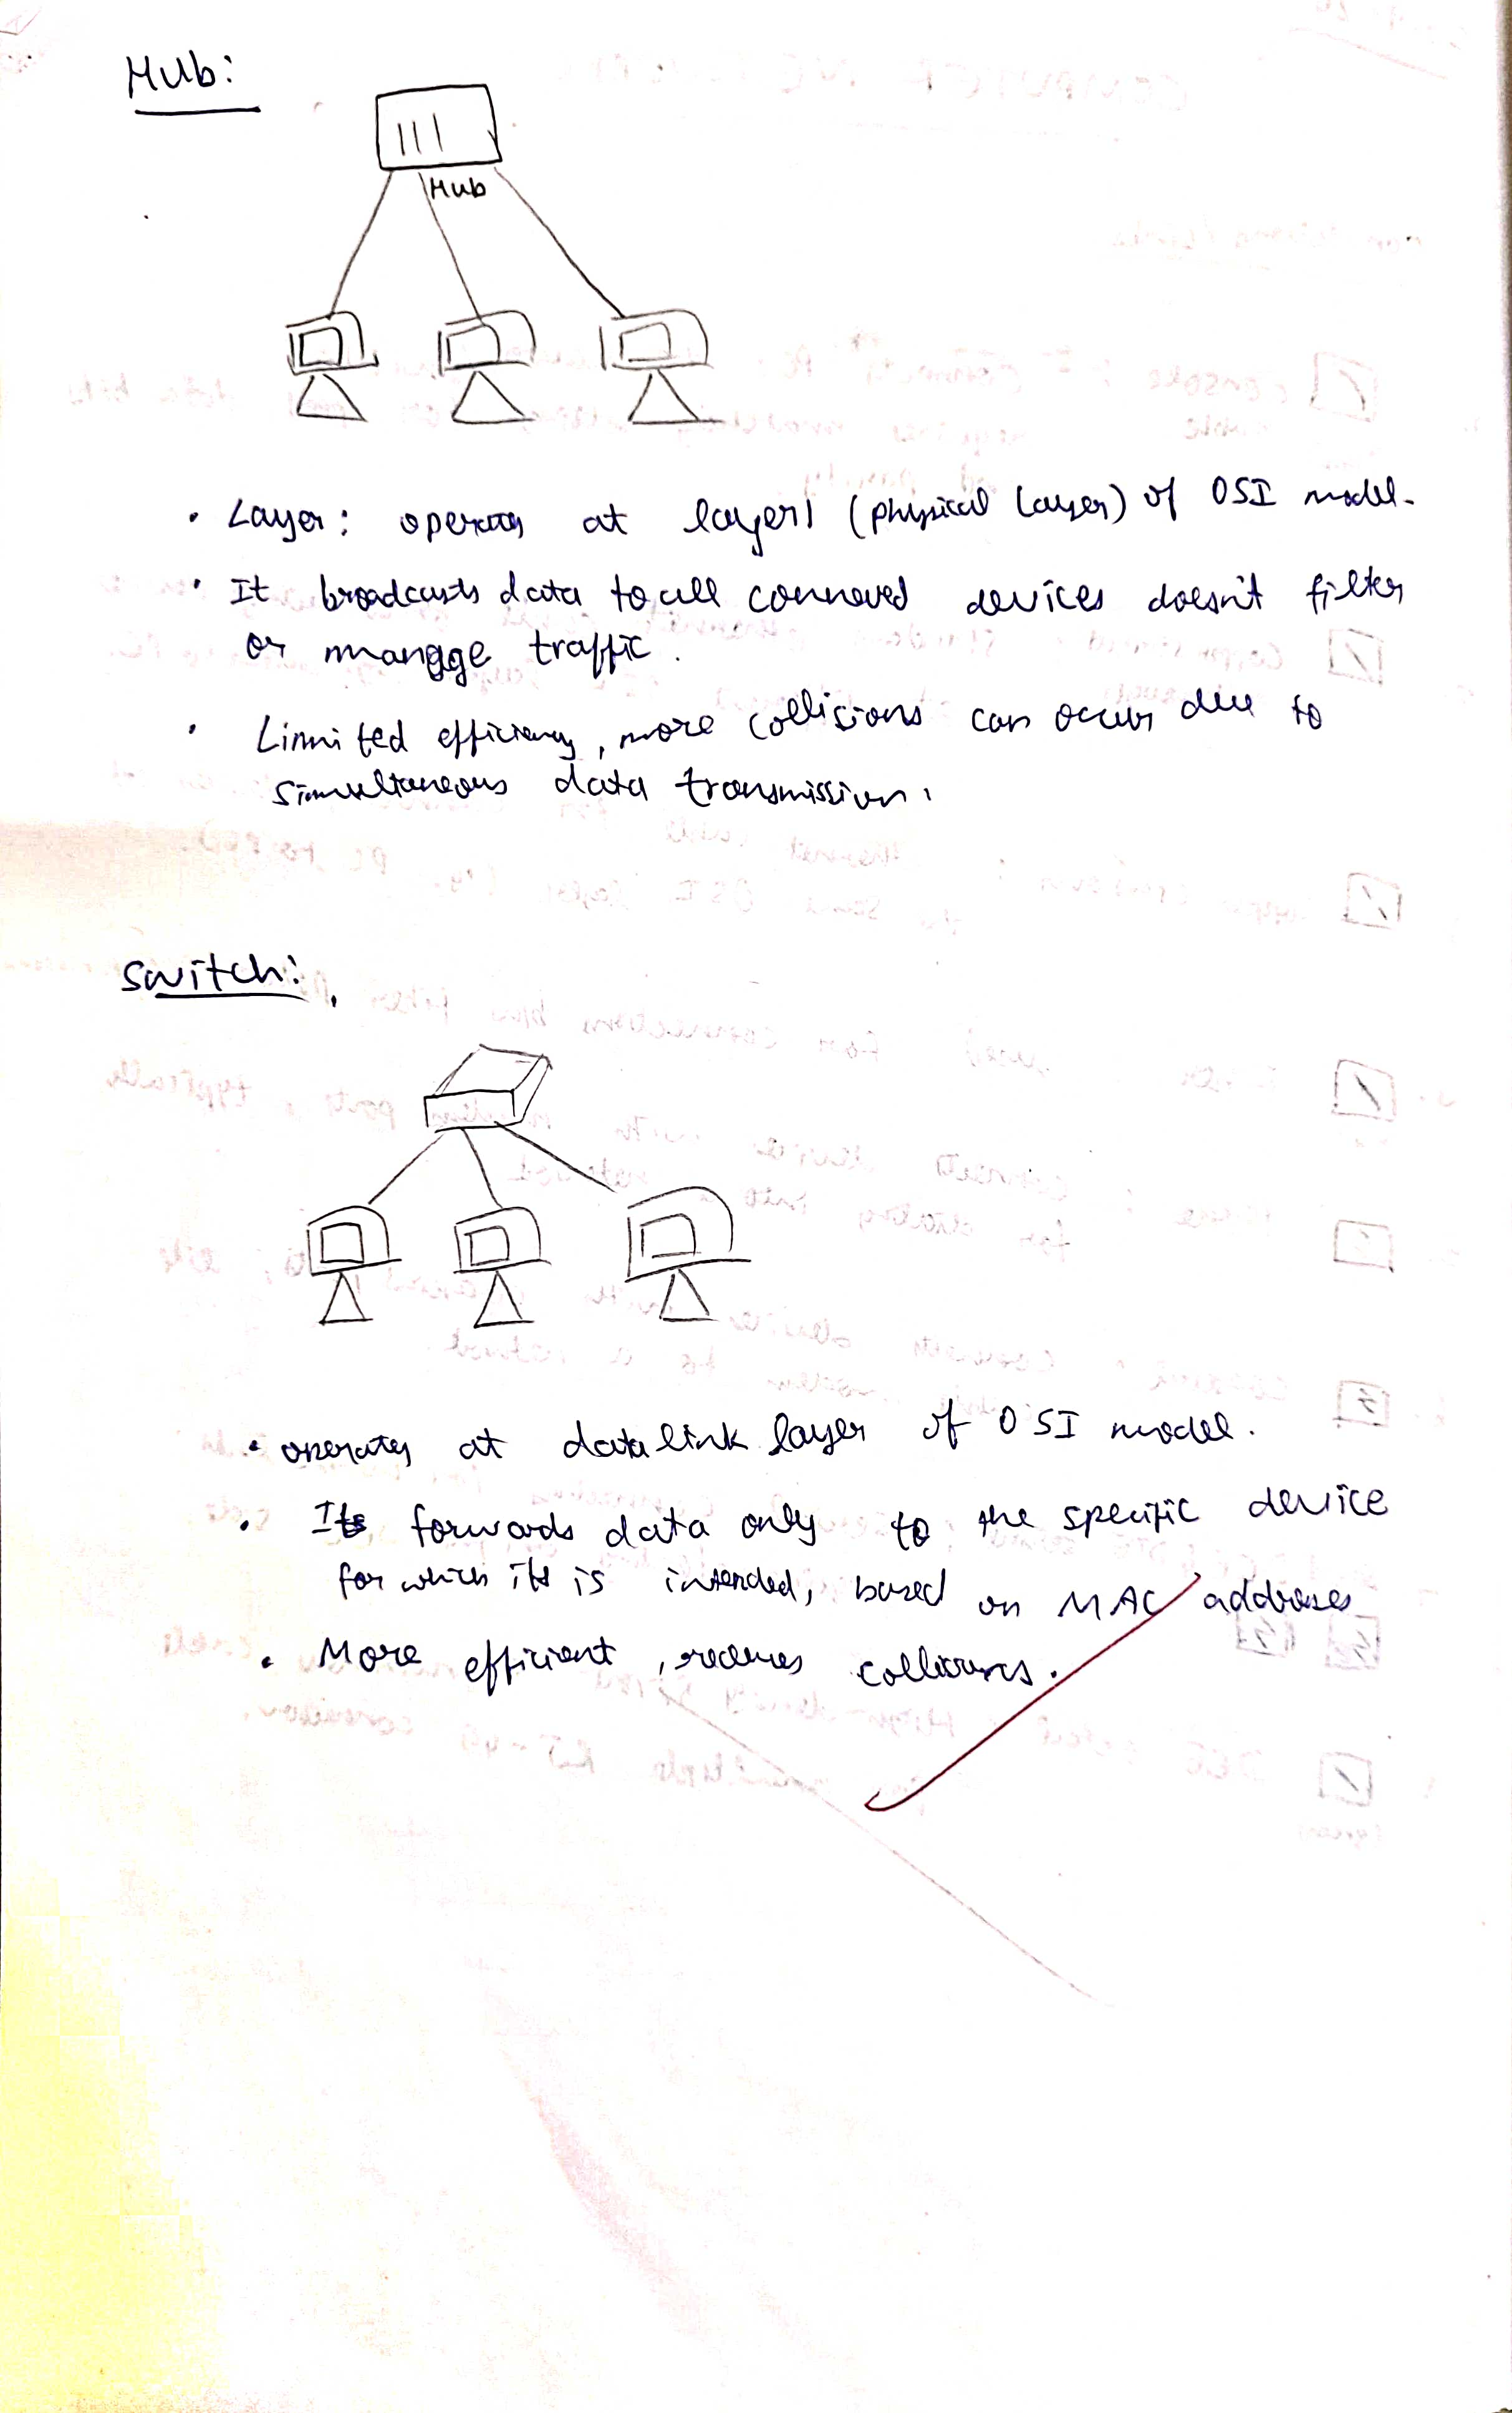 Hub:
Hub
• Layer: operates at layer1 (physical Layer) of OSI model.
• It broadcasts data to all connected devices doesn't filter
or mangge traffic.
• Limited efficiency, more collisions can occur due to
simultaneous data transmission.
Switch:
• operates at datalink layer of OSI model.
• It forwards data only to the specific device
for which it is intended, based on MAC addresses
• More efficient, reduces collisions.